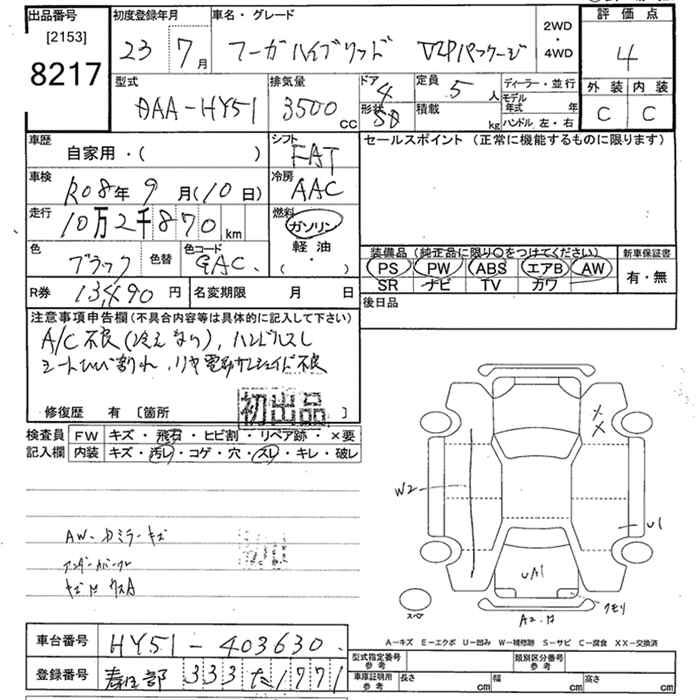 出品番号
[2153]
8217
初度登録年月
23 7月
車名・グレード
フーガハイブリッド VIPパッケージ
2WD
・
4WD
評価点
4
外装 内装
C C
型式
DAA-HY51
排気量
3500 CC
ドア
4
形状
SD
定員
5 人
積載
kg
ディーラー・並行
モデル
年式 年
ハンドル 左・右
車歴
自家用・( )
シフト
FAT
セールスポイント (正常に機能するものに限ります)
車検
R08年9月(10日)
冷房
AAC
走行
10万2千870 km
燃料
ガソリン
軽油
( ・ )
色
ブラック
色替
色コード
GAC
装備品 (純正品に限り〇をつけてください)
新車保証書
PS PW ABS エアB AW
SR ナビ TV カワ
有・無
R券
13,490 円
名変期限 月 日
後日品
注意事項申告欄(不具合内容等は具体的に記入して下さい)
A/C不良(冷えない), ハンドルスレ
シートひび割れ, リヤ電動サンシェイド不良
修復歴 有 [箇所 ]
初出品
検査員
記入欄
FW キズ・飛石・ヒビ割・リペア跡・×要
内装 キズ・汚レ・コゲ・穴・スレ・キレ・破レ
AW-ドミラーキズ
アンダーカバークレ
W2
U1
UA1
クモリ
スペア
A-キズ E-エクボ U-凹み W-補修跡 S-サビ C-腐食 XX-交換済
車台番号
HY51-403630
登録番号
春日部 333 た 1771
型式指定番号
参考
類別区分番号
参考
車庫証明用
参考
長さ cm
幅 cm
高さ cm